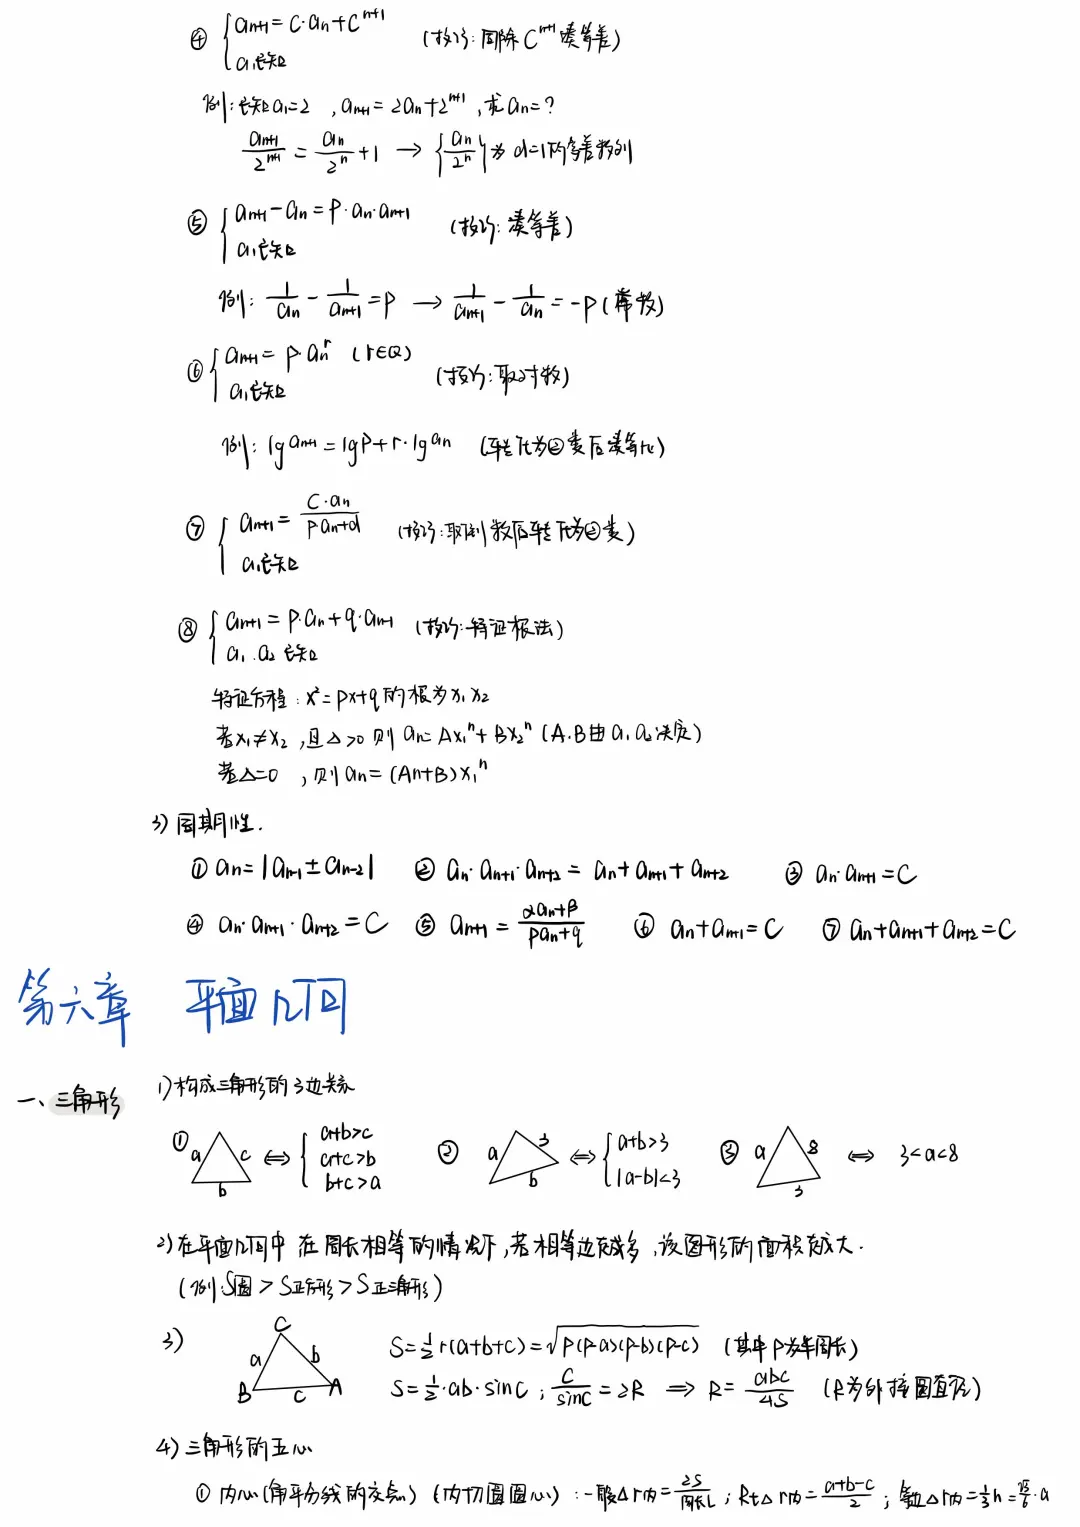 ④ { aₙ₊₁ = C·aₙ + Cⁿ⁺¹ (技巧: 同除 Cⁿ⁺¹ 凑等差)
a₁已知
例: 已知 a₁=2 , aₙ₊₁ = 2aₙ + 2ⁿ⁺¹ , 求 aₙ=?
aₙ₊₁/2ⁿ⁺¹ = aₙ/2ⁿ + 1 → {aₙ/2ⁿ} 为 d=1的等差数列
⑤ { aₙ₊₁ - aₙ = P·aₙ·aₙ₊₁ (技巧: 凑等差)
a₁已知
例: 1/aₙ - 1/aₙ₊₁ = P → 1/aₙ₊₁ - 1/aₙ = -P (常数)
⑥ { aₙ₊₁ = P·aₙʳ (r∈Q) (技巧: 取对数)
a₁已知
例: lg aₙ₊₁ = lg P + r·lg aₙ (转化为②类后凑等比)
⑦ { aₙ₊₁ = C·aₙ/(Paₙ+d) (技巧: 取倒数后转化为②类)
a₁已知
⑧ { aₙ₊₁ = P·aₙ + q·aₙ₋₁ (技巧: 特征根法)
a₁.a₂ 已知
特征方程: x²=px+q 的根为 x₁ x₂
若x₁≠x₂ , 且△>0 则 aₙ= Ax₁ⁿ + Bx₂ⁿ (A.B由 a₁ a₂ 决定)
若△=0 , 则 aₙ = (An+B)x₁ⁿ
3) 周期性.
① aₙ = |aₙ₋₁ ± aₙ₋₂| ② aₙ·aₙ₊₁·aₙ₊₂ = aₙ+aₙ₊₁+aₙ₊₂ ③ aₙ·aₙ₊₁ = C
④ aₙ·aₙ₊₁·aₙ₊₂ = C ⑤ aₙ₊₁ = (αaₙ+β)/(paₙ+q) ⑥ aₙ+aₙ₊₁ = C ⑦ aₙ+aₙ₊₁+aₙ₊₂ = C
第六章 平面几何
一、三角形 1) 构成三角形的3边关系
① a c b ⇔ { a+b>c a+c>b b+c>a ② a 3 b ⇔ { a+b>3 |a-b|<3 ③ a 8 3 ⇔ 3<a<8
2) 在平面几何中 在周长相等的情况下, 若相等边越多, 该图形的面积越大.
(例: S圆 > S正方形 > S正三角形)
3) C a b B c A S = ½r(a+b+c) = √P(P-a)(P-b)(P-c) (其中P为半周长)
S = ½·ab·sinC ; c/sinC = 2R ⇒ R = abc/4S (R为外接圆直径)
4) 三角形的五心
① 内心(角平分线的交点) (内切圆圆心): 一般△ r内 = 2S/周长L ; Rt△ r内 = (a+b-c)/2 ; 等边△ r内 = ⅓h = √3/6·a